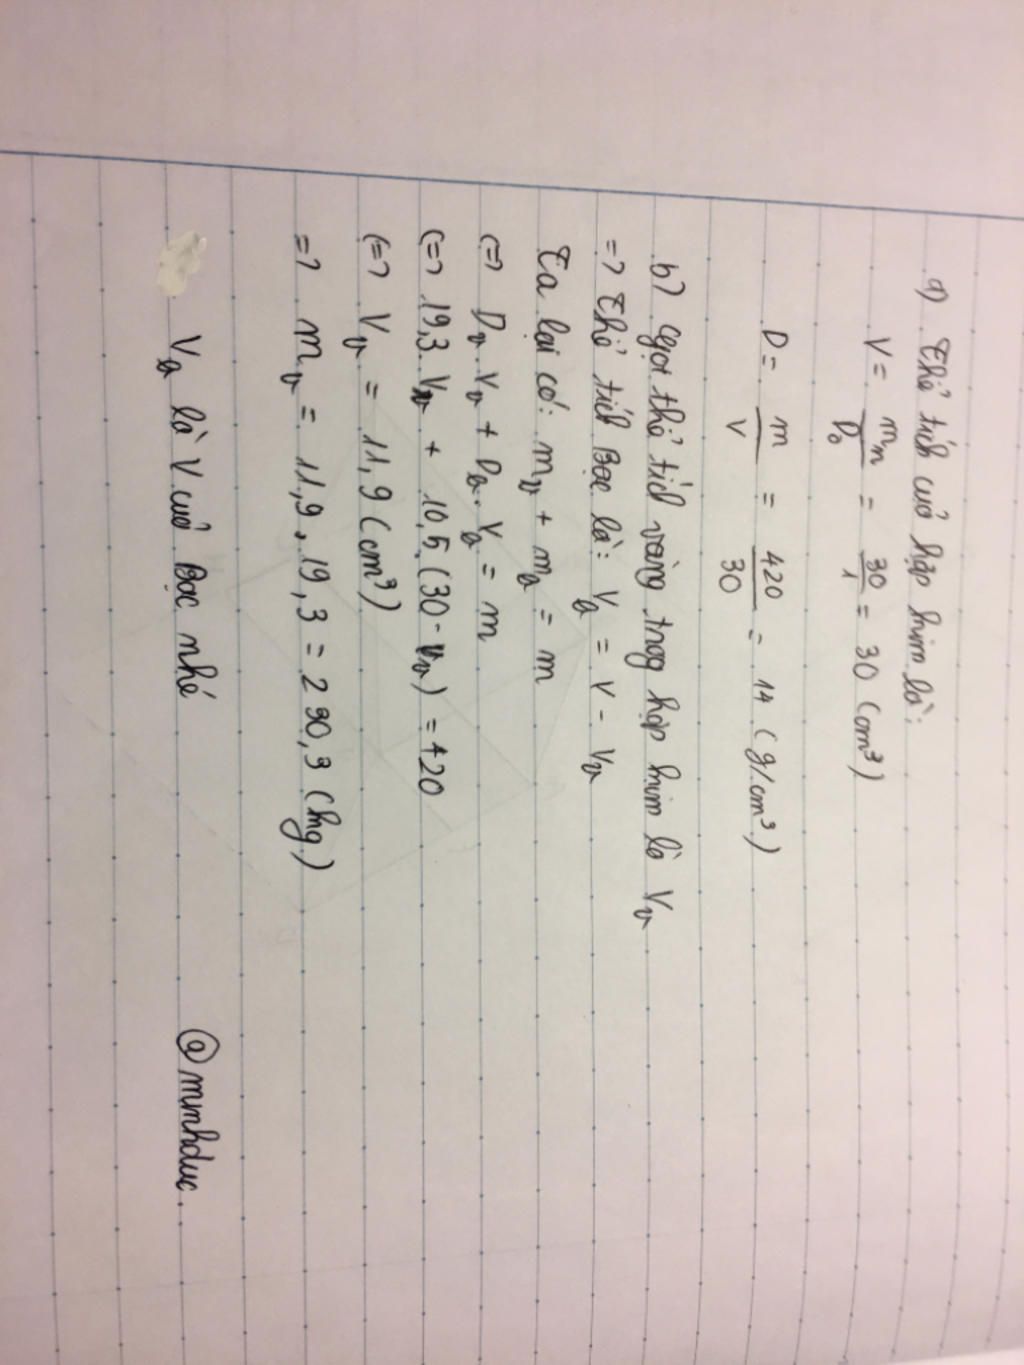 a) Thể tích của hợp kim là:
V = mn/D₀ = 30/1 = 30 (cm³)
D = m/V = 420/30 = 14 (g/cm³)
b) Gọi thể tích vàng trog hợp kim là Vv
=> Thể tích Bạc là: Va = V - Vv
Ta lại có: mv + ma = m
(=) Dv.Vv + Da.Va = m
(=> 19,3.Vv + 10,5(30-Vv) = 420
(=> Vv = 11,9 (cm³)
=> mv = 11,9.19,3 = 290,3 (kg)
Va là V của Bạc nhé
@mmhduc.